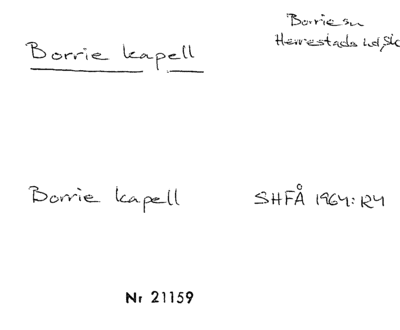 Borrie sn
Herrestads hd, Sk
Borrie kapell
Borrie kapell SHFÅ 1964: R4
Nr 21159